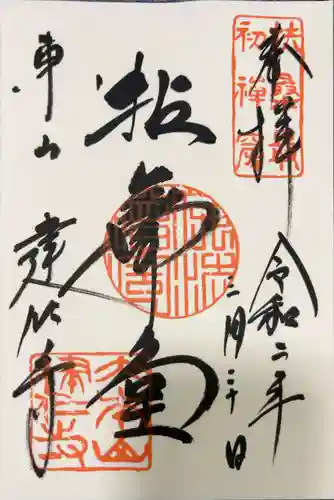 奉拝
扶桑最初禅窟
令和二年
二月二十日
拈華堂
東山 建仁寺
大本山建仁寺